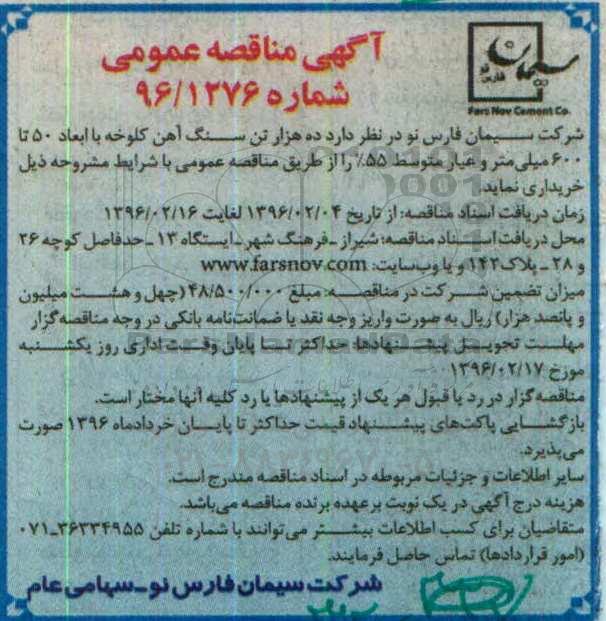 آگهی مناقصه عمومی
شماره ۹۶/۱۲۷۶
سیمان فارس نو
Fars Nov Cement Co.
شرکت سیمان فارس نو در نظر دارد ده هزار تن سنگ آهن کلوخه با ابعاد ۵۰ تا
۶۰۰ میلی‌متر و عیار متوسط ۵۵٪ را از طریق مناقصه عمومی با شرایط مشروحه ذیل
خریداری نماید.
زمان دریافت اسناد مناقصه: از تاریخ ۱۳۹۶/۰۲/۰۴ لغایت ۱۳۹۶/۰۲/۱۶
محل دریافت اسناد مناقصه: شیراز ـ فرهنگ شهر ـ ایستگاه ۱۳ ـ حدفاصل کوچه ۲۶
و ۲۸ ـ پلاک ۱۴۲ و یا وب‌سایت: www.farsnov.com
میزان تضمین شرکت در مناقصه: مبلغ ۴۸/۵۰۰/۰۰۰ (چهل و هشت میلیون
و پانصد هزار) ریال به صورت واریز وجه نقد یا ضمانت‌نامه بانکی در وجه مناقصه‌گزار
مهلت تحویل پیشنهادها: حداکثر تا پایان وقت اداری روز یکشنبه
مورخ ۱۳۹۶/۰۲/۱۷
مناقصه‌گزار در رد یا قبول هر یک از پیشنهادها یا رد کلیه آنها مختار است.
بازگشایی پاکت‌های پیشنهاد قیمت حداکثر تا پایان خردادماه ۱۳۹۶ صورت
می‌پذیرد.
سایر اطلاعات و جزئیات مربوطه در اسناد مناقصه مندرج است.
هزینه درج آگهی در یک نوبت برعهده برنده مناقصه می‌باشد.
متقاضیان برای کسب اطلاعات بیشتر می‌توانند با شماره تلفن ۳۶۳۳۴۹۵۵-۰۷۱
(امور قراردادها) تماس حاصل فرمایند.
شرکت سیمان فارس نو ـ سهامی عام